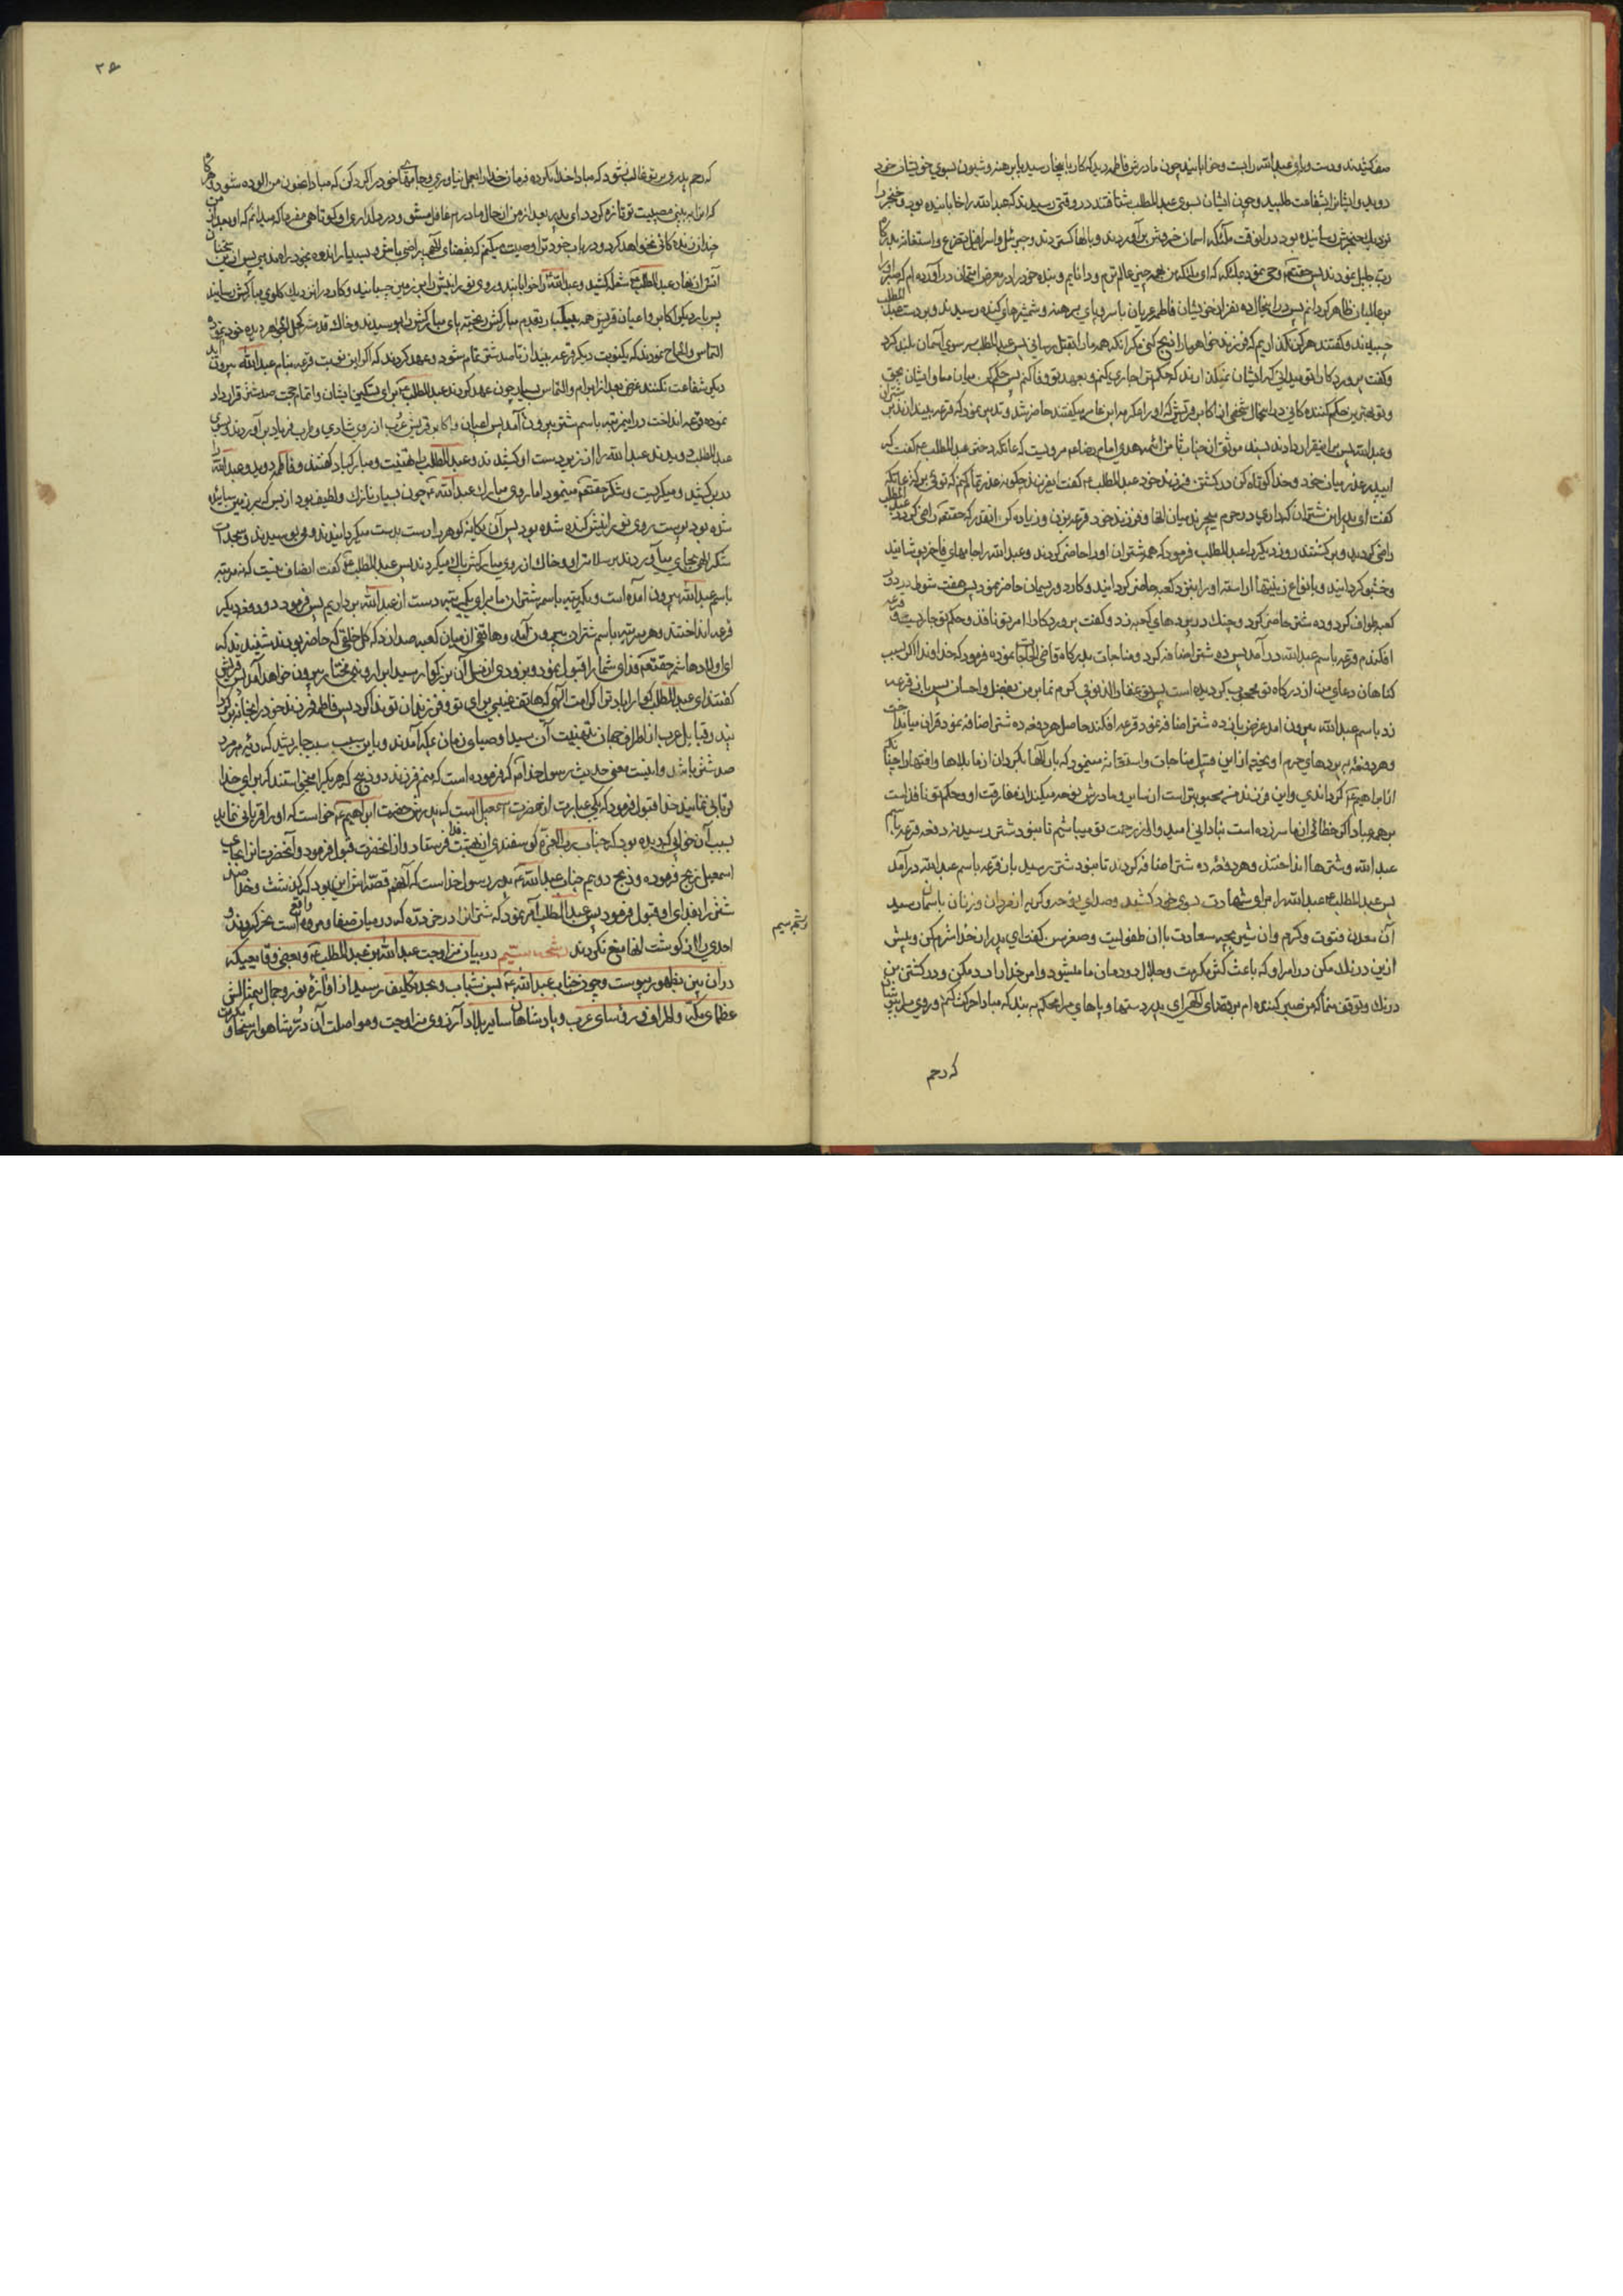 صف کشیدند و دست و پای عبدالله را بست و خوابانید چون مادرش فاطمه دید که کار باینجا رسید با سر برهنه و شیون بسوی خویشان خود
دوید و ایشانرا بشفاعت طلبید و چون ایشان بسوی عبدالمطلب شتافتند در وقتی رسیدند که عبدالله را خوابانیده بود و خنجر را
نزدیک حنجرش رسانیده بود در انوقت ملئکه اسمان خروش برآوردند و بالها کستردند و جبرئیل و اسرافیل تضرع و استغاثه بدرگاه
رب جلیل نمودند پس حقتعالی وحی نمود بملئکه که ای ملئکه من بهمه چیز عالم ترم و دانایم و بنده خود را در معرض امتحان در آورده ام که صبر او را
بر عالمیان ظاهر گردانم پس در اینحال ده نفر از خویشان فاطمه عریان با سر و پای برهنه و شمشیرهای کشیده رسیدند و بر دست عبدالمطلب
چسبیدند و گفتند هرگز نگذاریم که فرزند خواهر ما را ذبح کنی مگر انکه همه ما را بقتل رسانی پس عبدالمطلب سر سوی آسمان بلند کرد
و گفت پروردگارا تو میدانی که ایشان نمیگذارند که حکم ترا جاری کنم و بعهد تو وفا کنم پس حکم کن میان من و ایشان بحق
و تو بهترین حکم کننده کانی در اینحال شخصی از اکابر قریش که او را عکرمه ابن عامر میگفتند حاضر شد و تدبیر نمود که قرعه بیندازند بر شتران
و عبدالله پس بر این قرار دادند بسند موثق از جناب ثامن ائمه هدی امام رضا ع مرویست که عاتکه دختر عبدالمطلب گفت که
ای پدر عذر میان خود و خدا کوتاه کن در کشتن فرزند خود عبدالمطلب گفت ای فرزند چگونه عذر تمام کنم که توئی برکه عاتکه
گفت ای پدر این شتران که داری در حرم میچرند میان انها و فرزند خود قرعه بزن و زیاده کن انقدر که حقتعالی راضی گردد عبدالمطلب
راضی گردید و برگشتند روز دیگر عبدالمطلب فرمود که همه شتران او را حاضر کردند و عبدالله را جامهای فاخر پوشانید
و خشبو گردانید و بانواع زینتها اراسته او را بنزد کعبه حاضر گردانید و کارد و ریسمان حاضر نمود پس هفت شوط بر دور
کعبه طواف کرد و ده شتر حاضر کرد و چنگ در پرده های کعبه زد و گفت پروردگارا امر تو نافذ و حکم تو جاریست قرعه
افکندم و قرعه باسم عبدالله در آمد پس ده شتر اضافه کرد و مناجات بدرگاه قاضی الحاجات نموده فرمود که خداوندا اگر بسبب
گناهان دعای من از درگاه تو محجوب گردیده است پس تو غفار الذنوبی کرم نما بر من بفضل و احسان پس بار دیگر قرعه
زد باسم عبدالله بیرون امد عرض باز ده شتر اضافه نمود قرعه افکند حاصل هر دفعه ده شتر اضافه نمود قران میانداخت
و هر دفعه بر پرده های حرم او یخته از این قبیل مناجات و استغاثه مینمود که بار الها بگردان از ما بلاها و افتها را چنانکه
از ابراهیم ع گرداندی و این فرزند من محبوبتر است از سایر و مادرش نوحه میکند از مفارقت او و حکم تو نافذ است
بر همه عباد اگر خطائی از ما سرزده است بنادانی امید وار از رحمت تو میباشم تا بنود شتر رسید نه دفعه قرعه بنام
عبدالله و شترها انداختند و هر دفعه ده شتر اضافه کردند تا بنود شتر رسید باز قرعه باسم عبدالله در آمد
پس عبدالمطلب عبدالله را برای شهادت بسوی خود کشید و صدای نوحه و گریه از مردان و زنان باسمان رسید
آن معدن فتوت و کرم و ان شیر بچه سعادت با ان طفولیت و صغر سن گفت ای پدر از خدا شرم کن و بیش
ازین درنگ مکن در امر او که باعث کشف کربت و حلال دودمان ما میشود و امر خدا را رد مکن و در کشتن من
درنگ و توقف منما که من صبر کننده ام بر قضای الهی ای پدر دستها و پاهای مرا محکم ببند که مبادا حرکت کنم و روی مرا بپوشان
که رحم
۳۶
که رحم پدر و بر تو غالب نشود که مبادا خدا نکرده فرمان خدا را بعمل نیاوری و جامهای خود را گرد کن که مبادا بخون من الوده شود و هر گاه
که انرا به بینی مصیبت تو تازه گردد ای پدر بعد از من از حال مادرم غافل مشو و در دلداری او کوتاهی مفرما که میدانم که او بعد از من
چندان زندگانی نخواهد کرد و در باب خود ترا وصیت میکنم که بقضای الهی راضی باش و بسیار اندوه بخود راه مده پس از سخنان
آتش از نهاد عبدالمطلب شعله کشید و عبدالله را خوابانید و روی نورانیش را بر زمین چسبانید و کارد را نزدیک گلوی مبارکش رسانید
پس بار دیگر اکابر و اعیان قریش همه بیکبار بقدم مبارکش ریخته پای مبارکش را بوسیدند و خاک قدمش کحل الجواهر دیده خود نموده
التماس و الحاح نمودند که یکنوبت دیگر قرعه بیندازد تا صد شتر تمام شود و عهد کردند که اگر این نوبت قرعه بنام عبدالله بیرون آید
دیگر شفاعت نکنند غرض بعد از ابرام و التماس بسیار چون عهد کردند عبدالمطلب برای تسکین ایشان و اتمام حجت صد شتر قرار داد
نموده قرعه انداخت در اینمرتبه باسم شتر بیرون آمد پس اعیان و اکابر قریش عرب از روی شادی و طرب فریاد بر آوردند بسوی
عبدالمطلب دویدند عبدالله را از زیر دست او کشیدند و عبدالمطلب را تهنیت و مبارکباد گفتند و فاطمه دوید و عبدالله را
در بر کشید و میگریست و شکر حقتعالی مینمود اما روی مبارک عبدالله چون بسیار نازک و لطیف بود از بس که بر زمین سائیده
شده بود پوست روی نورانیش کنده شده بود پس آن یگانه گوهر را دست بدست میگردانیدند و می بوسیدند و سجدات
شکر الهی بجای می آوردند بر سلامتی او و خاک از روی مبارکش پاک میکردند پس عبدالمطلب گفت انصاف نیست که نه مرتبه
باسم عبدالله بیرون آمده است و یکمرتبه باسم شتران ما برای یکمرتبه دست از عبدالله برداریم پس فرمود دو دفعه دیگر
قرعه انداختند و هر مرتبه باسم شتران بیرون آمد و هاتفی از میان کعبه صدا زد که کل خلقی که حاضر بودند شنیدند که
ای اولاد هاشم حقتعالی فدای شما را قبول نمود و بزودی از نسل آن بزرگوار سید ابرار و نبی مختار بیرون خواهد آمد پس قریش
گفتند ای عبدالمطلب گوارا باد ترا کرامت الهی که هاتف غیبی برای تو و فرزندان تو ندا کرد پس فاطمه فرزند خود را بخانه برد
و قبایل عرب از اطراف جهان بتهنیت آن سید اوصیای زمان بمکه آمدند و باین سبب سبب جاری شد که دیه هر مرد
صد شتر باشد و اینست معنی حدیث رسول خدا ص که فرموده است که منم فرزند دو ذبیح که هر یک را میخواستند که برای خدا
قربانی نمایند خدا قبول فرمود که یکی عبارت از حضرت اسمعیل است که پدرش حضرت ابراهیم ع خواست که او را قربانی نماید
بسبب آن خوابی که دیده بود که جناب رب العزة گوسفندی از بهشت فرستاد فدا و از انحضرت قبول فرمود و آنحضرت انرا بجای
اسمعیل ذبح فرموده و ذبیح دویم جناب عبدالله پدر رسول خداست که آنهم قصه اش این بود که گذشت و خدا صد
شتر را بفدای او قبول فرمود پس عبدالمطلب امر نمود که شتران را در حزوره که در میان صفا و مروه واقع است نحر کردند و
احدی را از گوشت انها منع نکردند رشحه بیستم در بیان مزاوجت عبدالله بن عبدالمطلب و بعضی وقایعیکه
در ان بین بظهور پیوست و چون جناب عبدالله بسن شباب و بحد تکلیف رسید از اوازه نور و جمال بیمثالش
عظمای مکه و اطراف و رؤسای عرب و پادشاهان سایر بلاد آرزوی مزاوجت و مواصلت آن در شاهوار